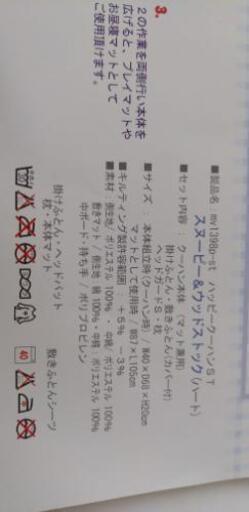 3.
2の作業を両側行い本体を
広げると、プレイマットや
お昼寝マットとして
ご使用頂けます。
■製品名 mv1398o-st ハッピークーハンST
スヌーピー&ウッドストック(ハート)
■セット内容：クーハン本体（マット兼用）
掛けふとん・敷きふとん(カバー付)
ヘッドガードS・枕
■サイズ：本体組立時(クーハン時) / W40×D68×H20cm
マットとして使用時 / W87×L105cm
■キルティング製許容範囲：+5% -3%
■素材：側生地/ポリエステル100% 中綿/ポリエステル100%
敷きマット/側生地 綿100%・中綿/ポリエステル100%
中ボード・持ち手 / ポリプロピレン
掛けふとん・ヘッドパット
枕・本体マット
敷きふとんシーツ
40